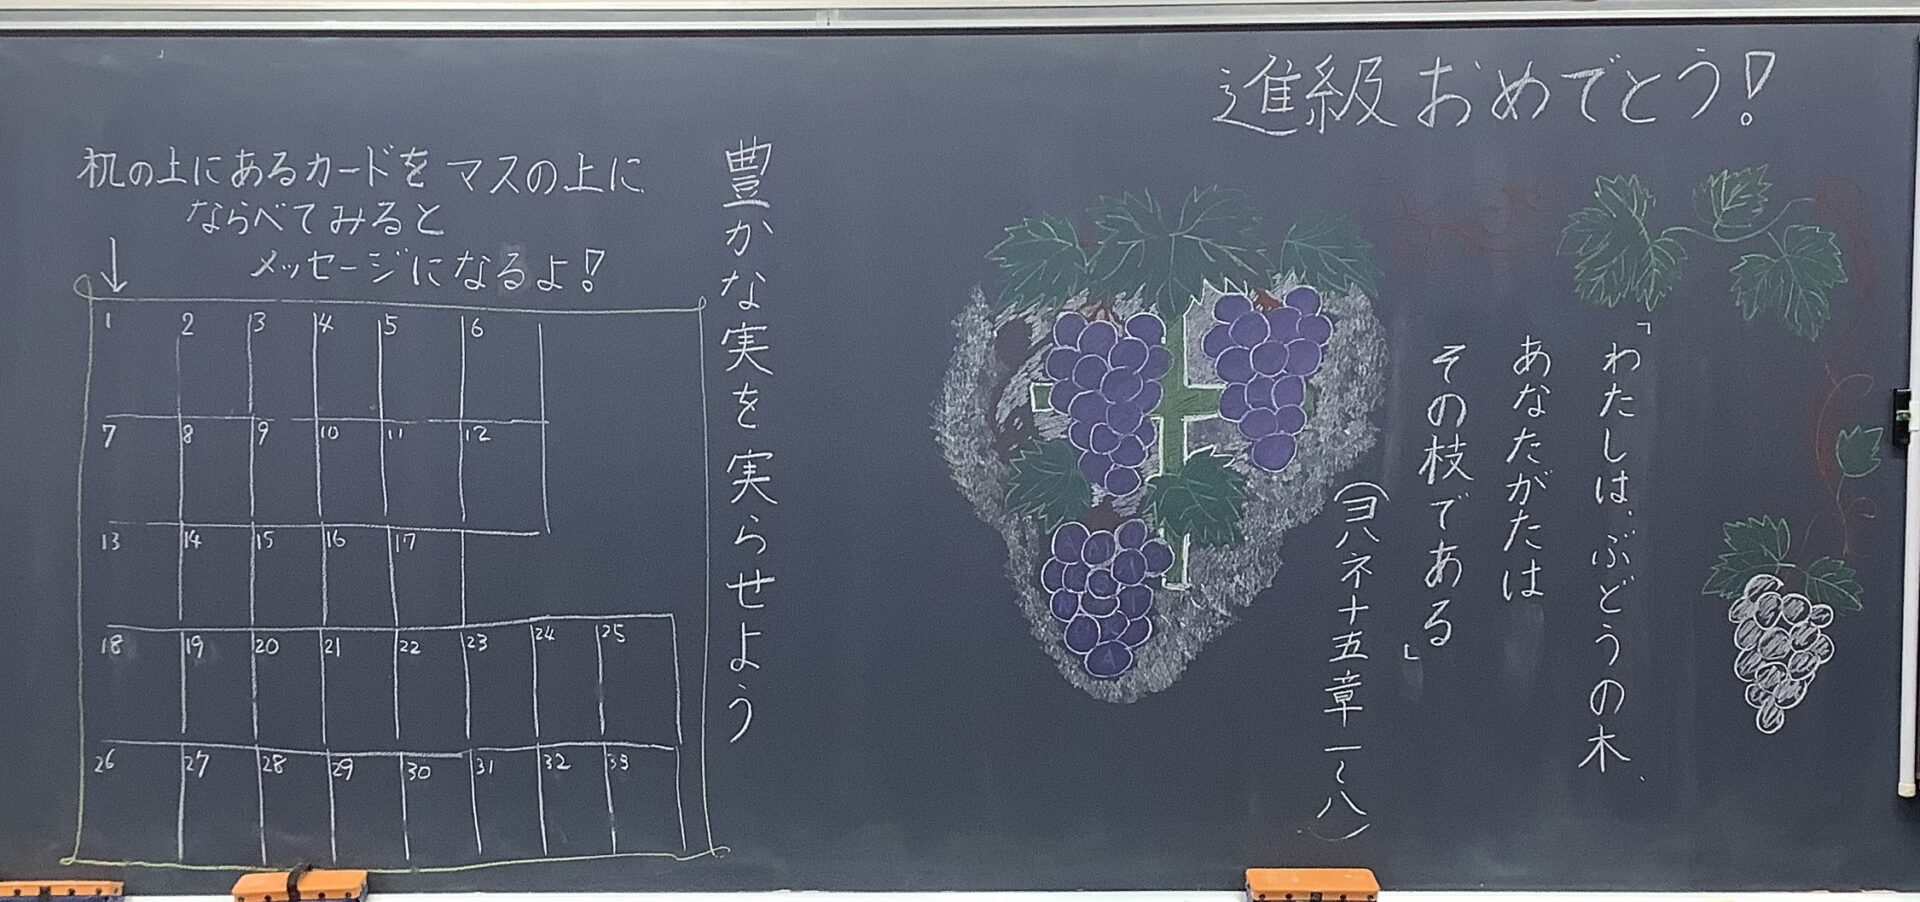 進級おめでとう!
「わたしは、ぶどうの木、
あなたがたは
その枝である」
(ヨハネ十五章一~八)
豊かな実を実らせよう
机の上にあるカードをマスの上に
ならべてみると
メッセージになるよ!
↓
1 2 3 4 5 6
7 8 9 10 11 12
13 14 15 16 17
18 19 20 21 22 23 24 25
26 27 28 29 30 31 32 33